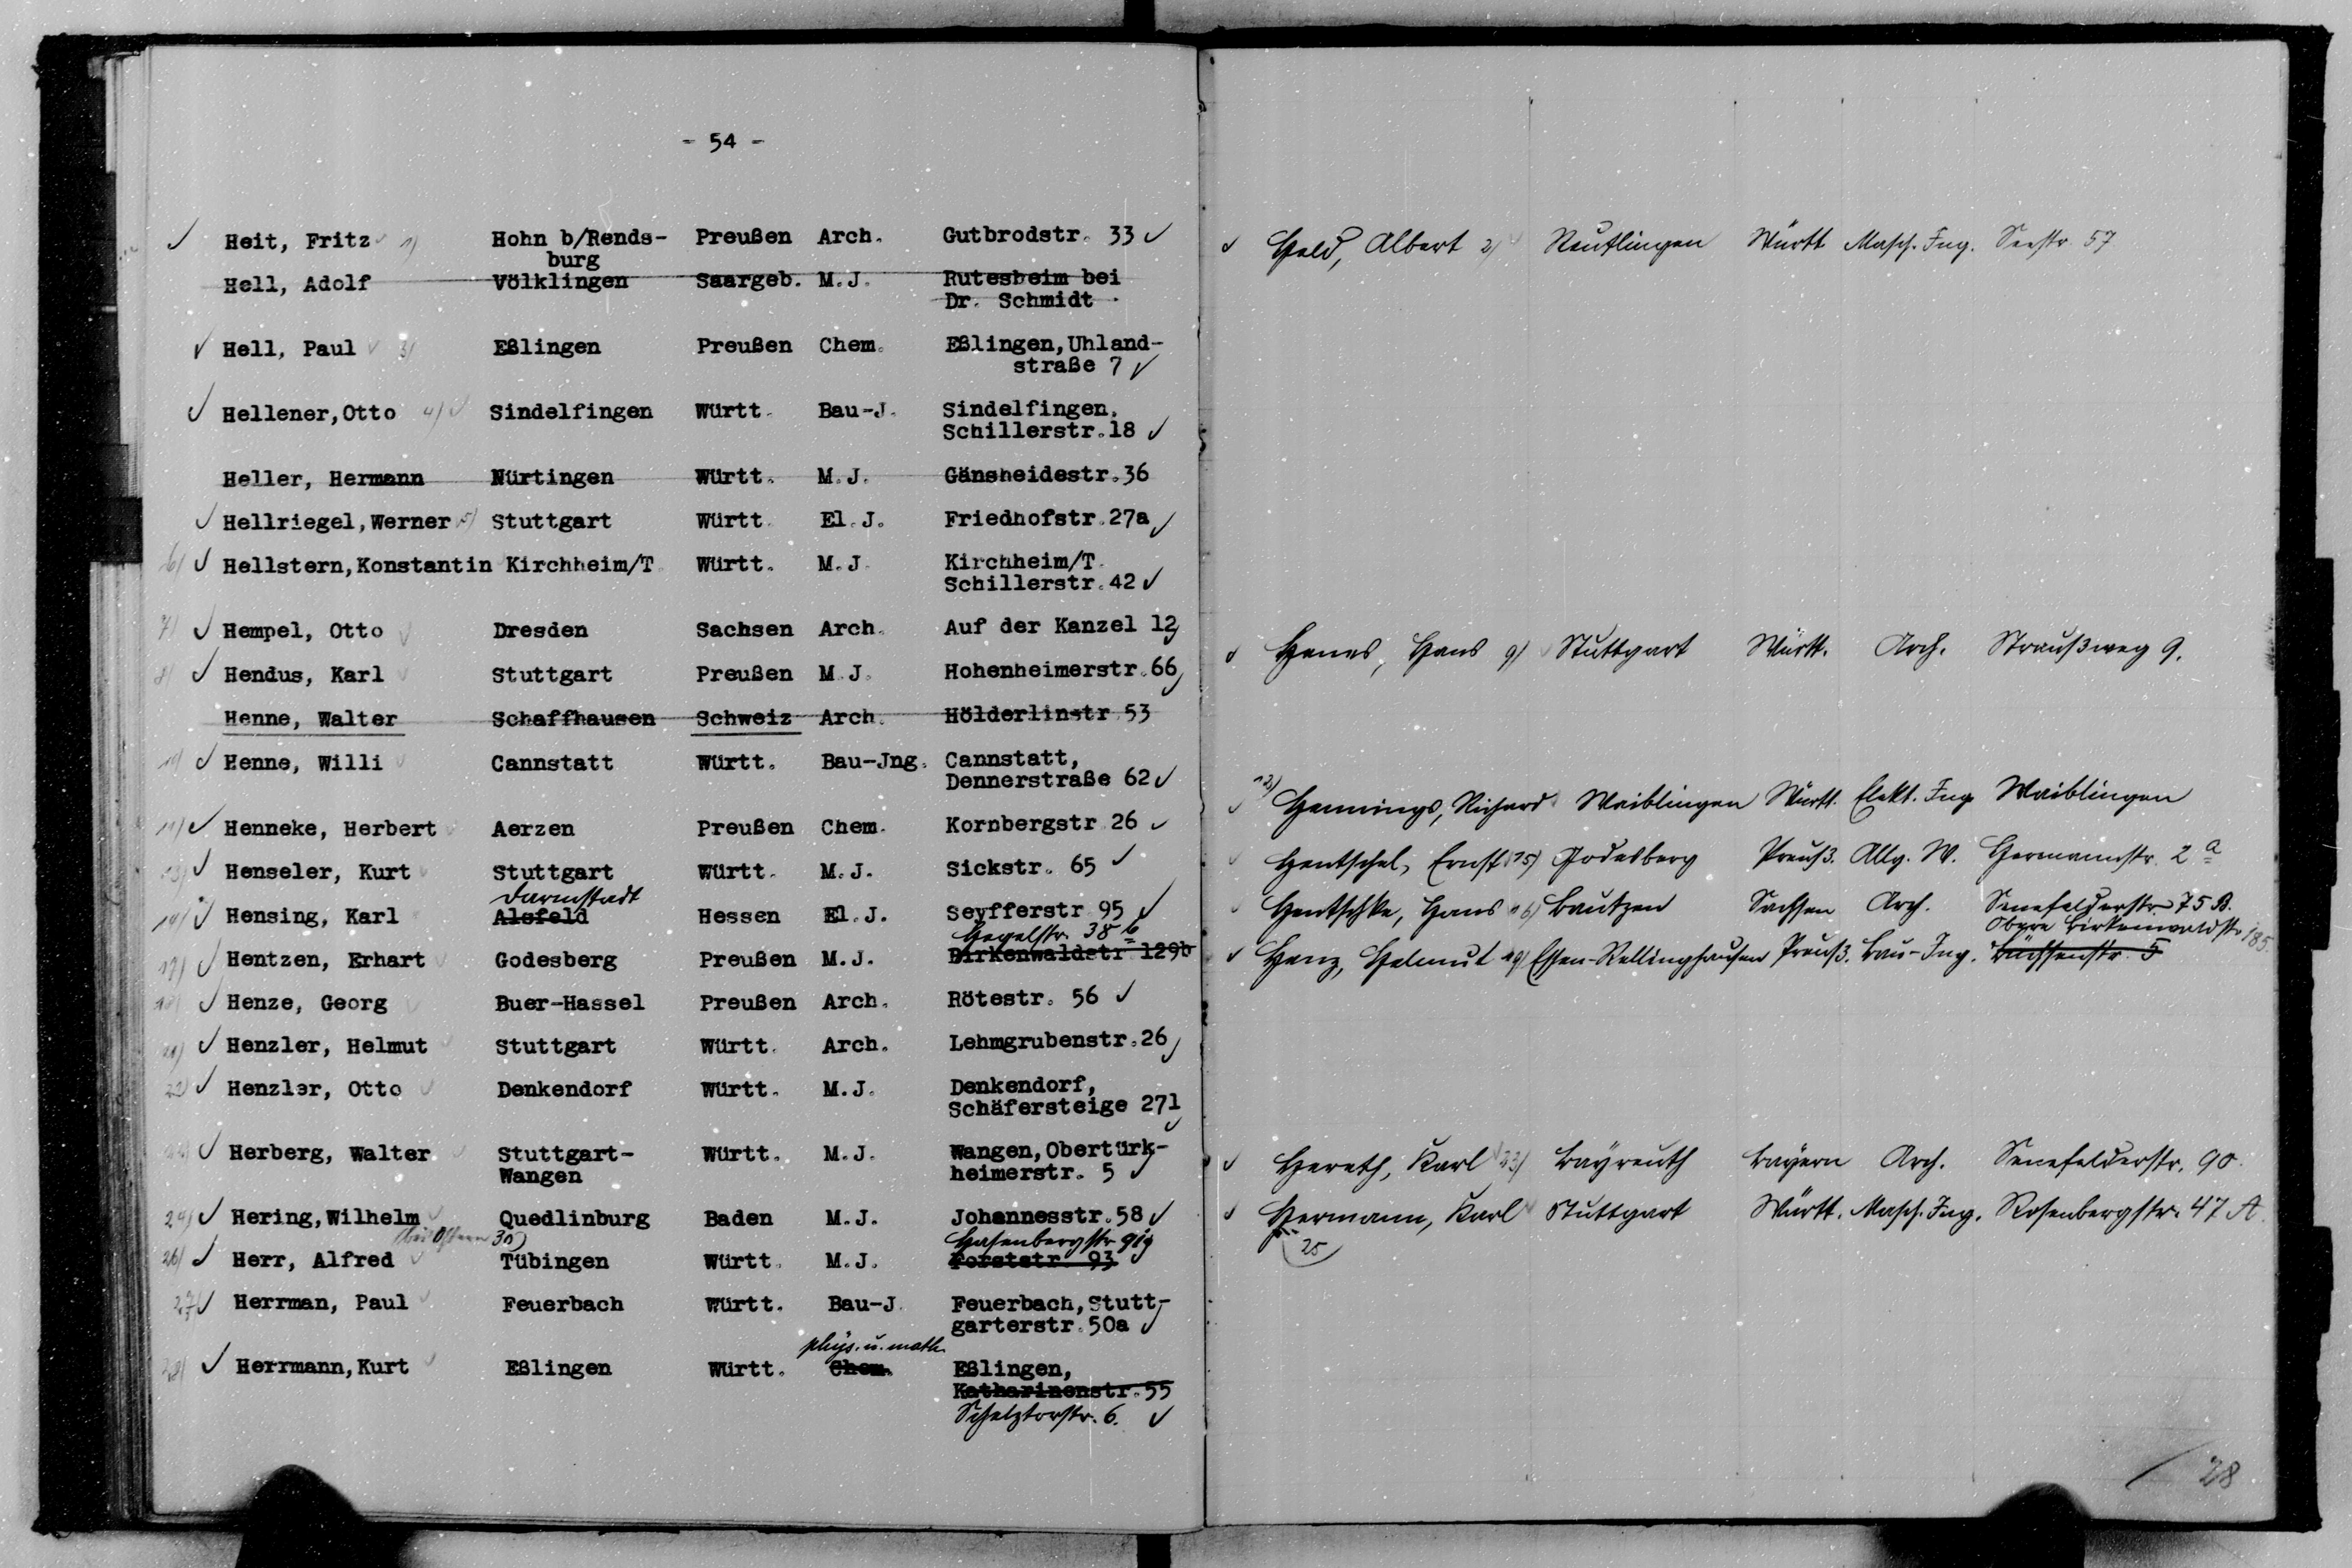 - 54 -
Heit, Fritz 1) Hohn b/Rends- Preußen Arch. Gutbrodstr. 33
burg
Hell, Adolf Völklingen Saargeb. M.J. Rutesheim bei
Dr. Schmidt
Hell, Paul 3) Eßlingen Preußen Chem. Eßlingen, Uhland-
straße 7
Hellener, Otto 4) Sindelfingen Württ. Bau-J. Sindelfingen,
Schillerstr. 18
Heller, Hermann Nürtingen Württ. M.J. Gänsheidestr. 36
Hellriegel, Werner 5) Stuttgart Württ. El.J. Friedhofstr. 27a
6) Hellstern, Konstantin Kirchheim/T. Württ. M.J. Kirchheim/T.
Schillerstr. 42
7) Hempel, Otto Dresden Sachsen Arch. Auf der Kanzel 12
8) Hendus, Karl Stuttgart Preußen M.J. Hohenheimerstr. 66
Henne, Walter Schaffhausen Schweiz Arch. Hölderlinstr. 53
10) Henne, Willi Cannstatt Württ. Bau-Jng. Cannstatt,
Dennerstraße 62
11) Henneke, Herbert Aerzen Preußen Chem. Kornbergstr. 26
13) Henseler, Kurt Stuttgart Württ. M.J. Sickstr. 65
Darmstadt
14) Hensing, Karl Alsfeld Hessen El.J. Seyfferstr. 95
Hegelstr. 38 b
17) Hentzen, Erhart Godesberg Preußen M.J. Birkenwaldstr. 129b
18) Henze, Georg Buer-Hassel Preußen Arch. Rötestr. 56
Henzler, Helmut Stuttgart Württ. Arch. Lehmgrubenstr. 26
Henzler, Otto Denkendorf Württ. M.J. Denkendorf,
Schäfersteige 271
Herberg, Walter Stuttgart- Württ. M.J. Wangen, Obertürk-
Wangen heimerstr. 5
24) Hering, Wilhelm Quedlinburg Baden M.J. Johannesstr. 58
bis Ostern 30) Hasenbergstr.
26) Herr, Alfred Tübingen Württ. M.J. Forststr. 93
27) Herrman, Paul Feuerbach Württ. Bau-J. Feuerbach, Stutt-
garterstr. 50a
phys. u. math.
28) Herrmann, Kurt Eßlingen Württ. Chem. Eßlingen,
Katharinenstr. 55
Schelztorstr. 6.
Held, Albert 2) Reutlingen Württ Masch. Ing. Seestr 57
Henes, Hans 9) Stuttgart Württ. Arch. Straußweg 9.
12) Hennings, Richard Waiblingen Württ. Elekt. Ing Waiblingen
Hentschel, Ernst 15) Godesberg Preuß. Allg. W. Germannstr. 2 a
Hentschke, Hans 16) Bautzen Sachsen Arch. Senefelderstr. 75 B.
Obere Birkenwaldstr. 185
Henz, Helmut 19) Essen-Rellinghausen Preuß. Bau-Ing. Büchsenstr. 5
Hereth, Karl 23) Bayreuth Bayern Arch. Senefelderstr. 90.
Hermann, Karl Stuttgart Württ. Masch. Ing. Rosenbergstr. 47 A.
25)
28